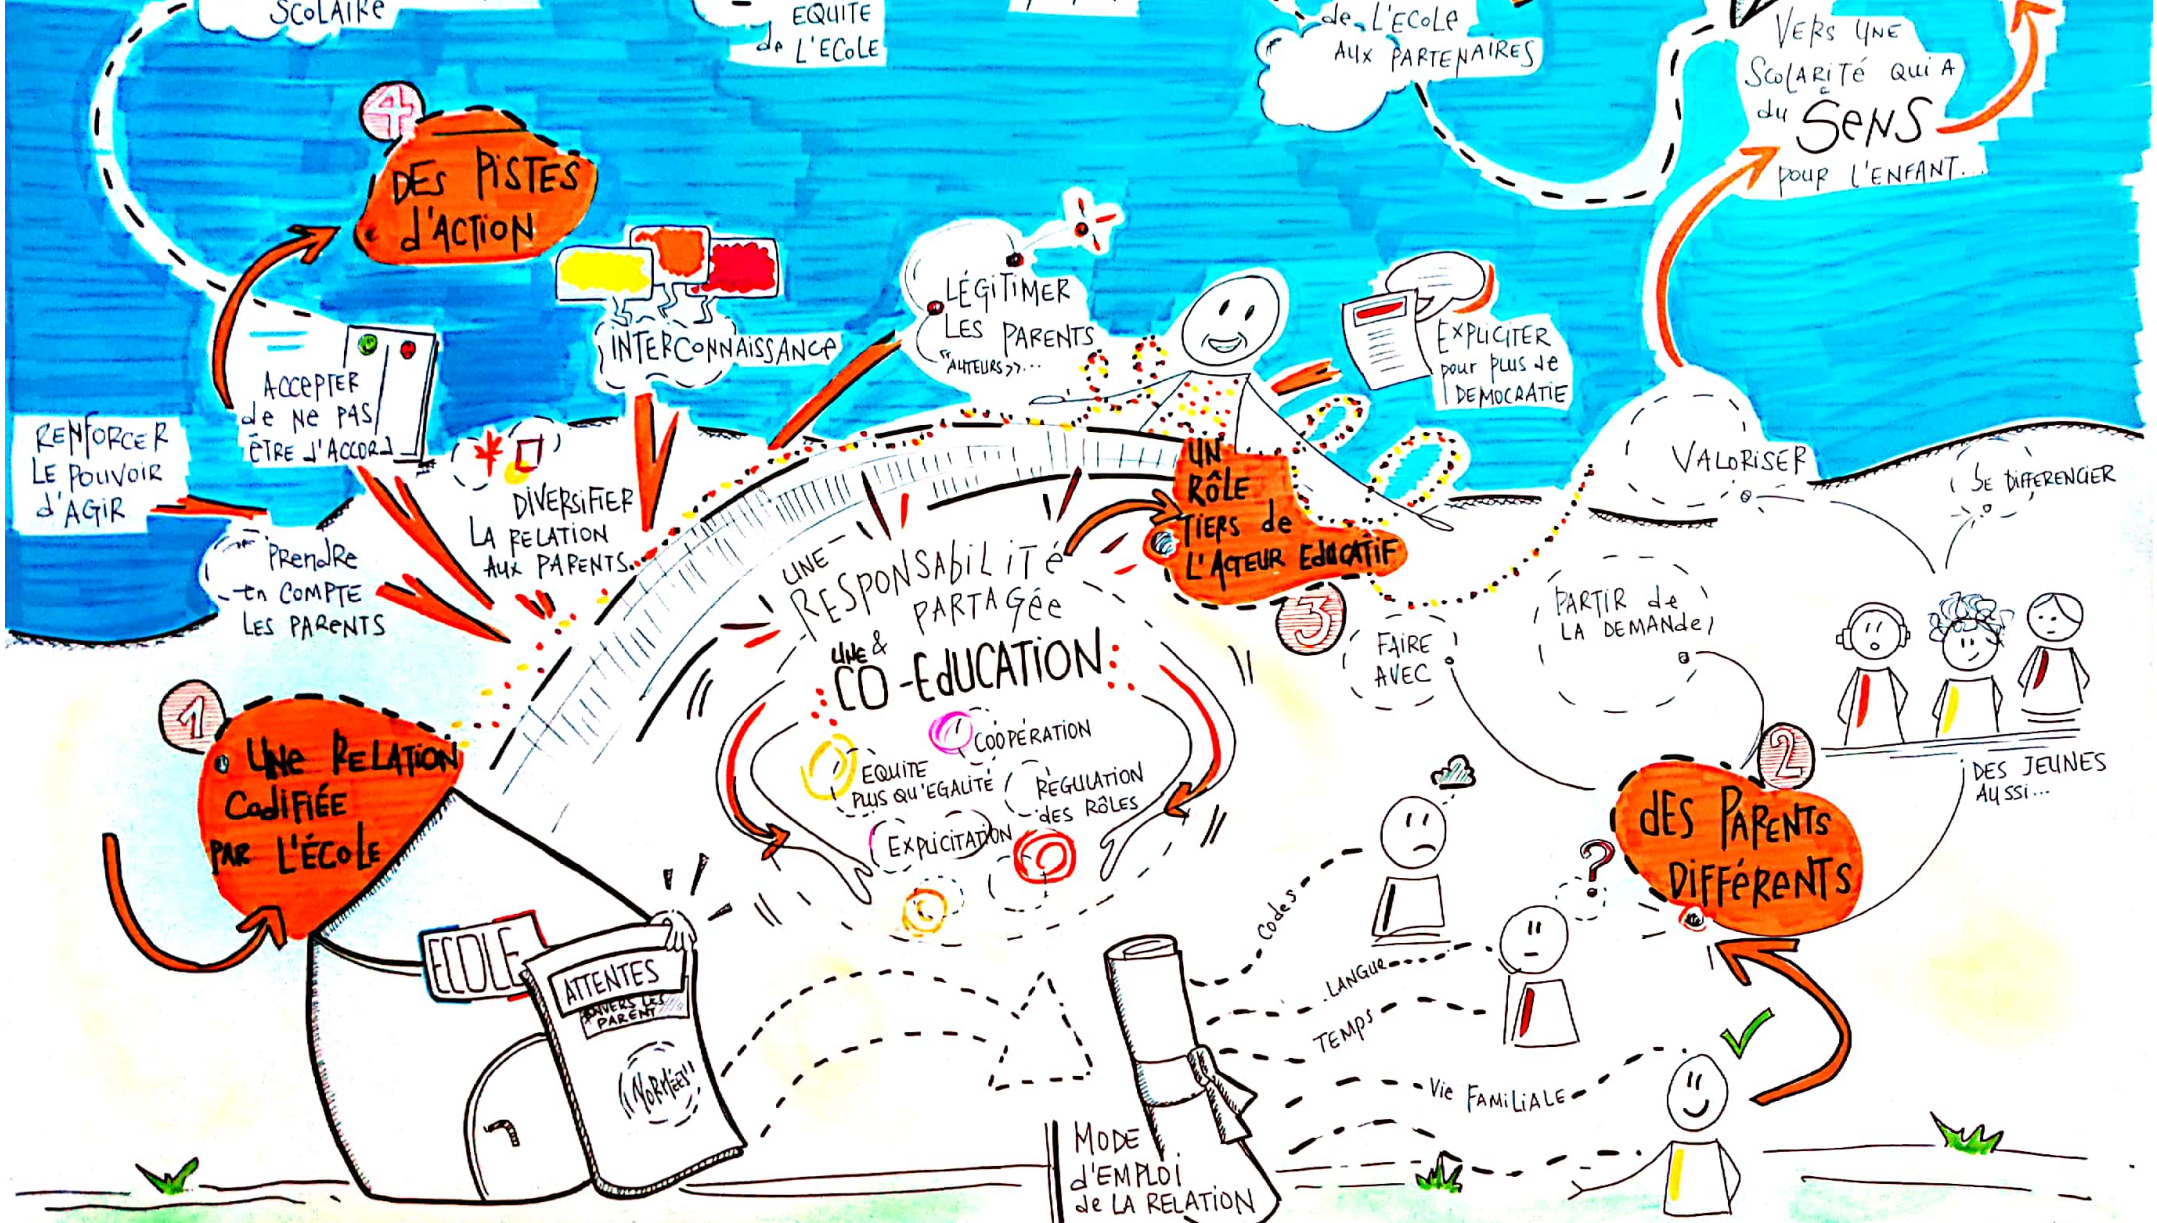 SCOLAIRE
EQUITE
de L'ECOLE
de L'ECOLE
AUX PARTENAIRES
VERS UNE
SCOLARITÉ QUI A
du SENS
POUR L'ENFANT...
4
DES PISTES
d'ACTION
INTERCONNAISSANCE
LÉGITIMER
LES PARENTS
"AUTEURS">...
EXPLICITER
pour plus de
DEMOCRATIE
ACCEPTER
de NE PAS
ÊTRE d'ACCORD
RENFORCER
LE POUVOIR
d'AGIR
PRENdRE
en COMPTE
LES PARENTS
DIVERSIFIER
LA RELATION
AUX PARENTS.
UN
RÔLE
TIERS de
L'ACTEUR EdUCATIF
3
VALORISER
SE DIFFERENCIER
UNE
RESPONSABILITÉ
PARTAGÉE
&
UNE
CO-EdUCATION
COOPÉRATION
EQUITE
PLUS QU'EGALITÉ
RÉGULATION
des RÔLES
EXPLICITATION
FAIRE
AVEC
PARTIR de
LA DEMANdE
1
UNE RELATION
COdIFIÉE
PAR L'ÉCOLE
2
dES PARENTS
DIFFÉRENTS
DES JEUNES
AUSSI...
ECOLE
ATTENTES
ENVERS LES
PARENT
"NORMÉES"
CODES
LANGUE
TEMPS
VIE FAMILIALE
MODE
d'EMPLOI
de LA RELATION